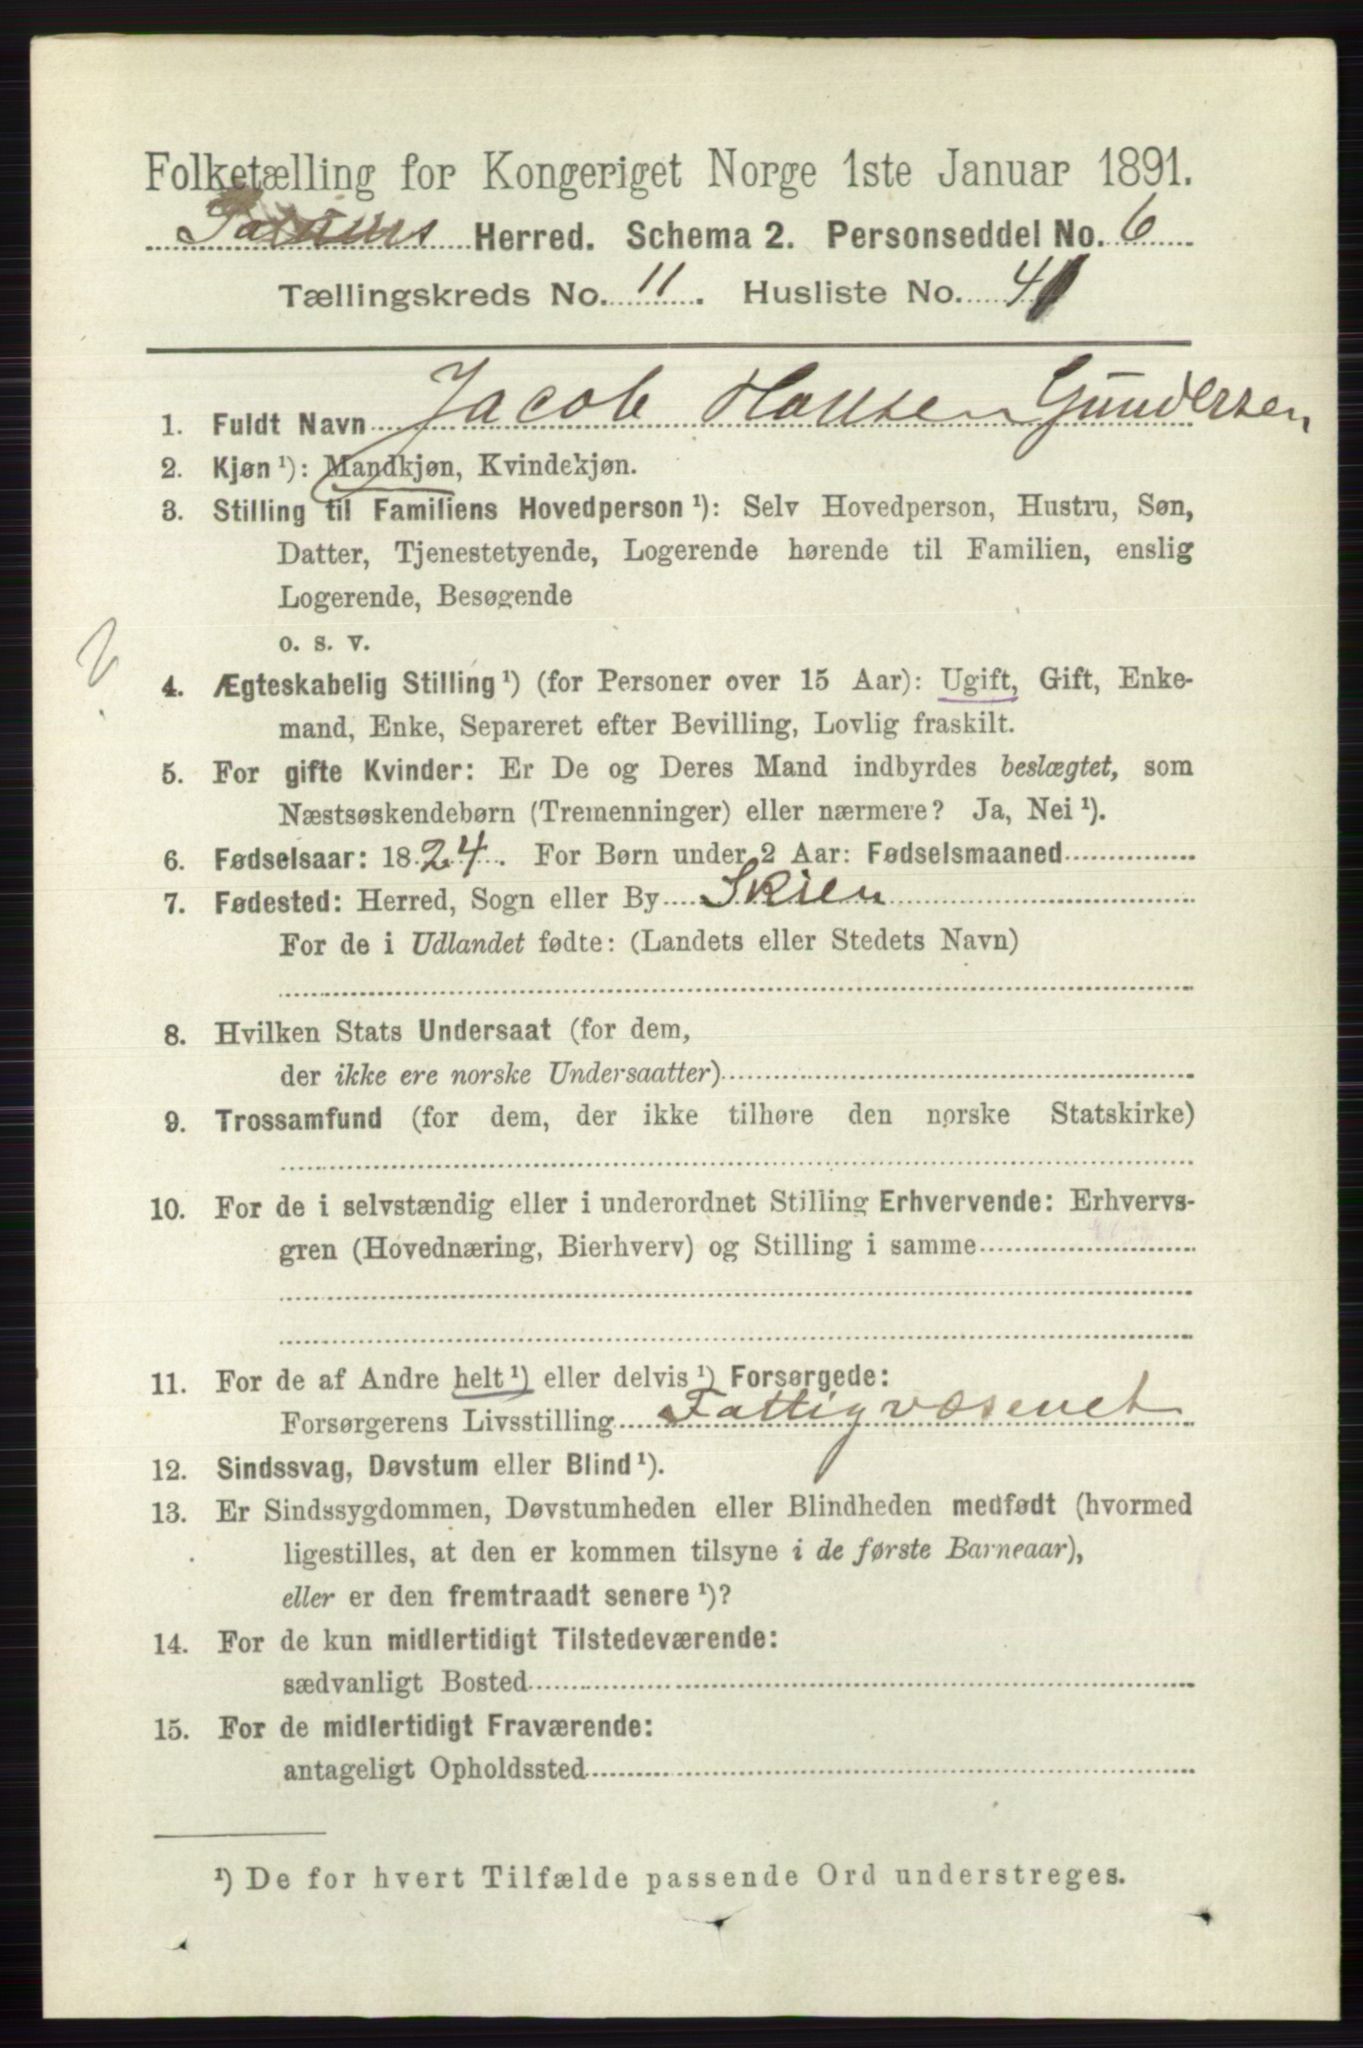 Folketælling for Kongeriget Norge 1ste Januar 1891.
Herred. Schema 2. Personseddel No. 6
Tællingskreds No. 11. Husliste No. 4
1. Fuldt Navn Jacob Hansen Gundersen
2. Kjøn ¹): Mandkjøn, Kvindekjøn.
3. Stilling til Familiens Hovedperson ¹): Selv Hovedperson, Hustru, Søn,
Datter, Tjenestetyende, Logerende hørende til Familien, enslig
Logerende, Besøgende
o. s. v.
4. Ægteskabelig Stilling ¹) (for Personer over 15 Aar): Ugift, Gift, Enke-
mand, Enke, Separeret efter Bevilling, Lovlig fraskilt.
5. For gifte Kvinder: Er De og Deres Mand indbyrdes beslægtet, som
Næstsøskendebørn (Tremenninger) eller nærmere? Ja, Nei ¹).
6. Fødselsaar: 1824. For Børn under 2 Aar: Fødselsmaaned
7. Fødested: Herred, Sogn eller By Skien
For de i Udlandet fødte: (Landets eller Stedets Navn)
8. Hvilken Stats Undersaat (for dem,
der ikke ere norske Undersaatter)
9. Trossamfund (for dem, der ikke tilhøre den norske Statskirke)
10. For de i selvstændig eller i underordnet Stilling Erhvervende: Erhvervs-
gren (Hovednæring, Bierhverv) og Stilling i samme
11. For de af Andre helt ¹) eller delvis ¹) Forsørgede:
Forsørgerens Livsstilling Fattigvæsenet
12. Sindssvag, Døvstum eller Blind ¹).
13. Er Sindssygdommen, Døvstumheden eller Blindheden medfødt (hvormed
ligestilles, at den er kommen tilsyne i de første Barneaar),
eller er den fremtraadt senere ¹)?
14. For de kun midlertidigt Tilstedeværende:
sædvanligt Bosted
15. For de midlertidigt Fraværende:
antageligt Opholdssted
¹) De for hvert Tilfælde passende Ord understreges.